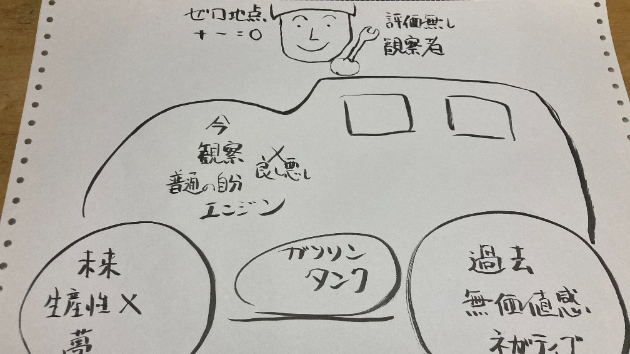 ゼロ地点
+ - = 0
評価無し
観察者
今
観察
普通の自分
× 良し悪し
エンジン
ガソリン
タンク
未来
生産性 ×
夢
過去
無価値感
ネガティブ